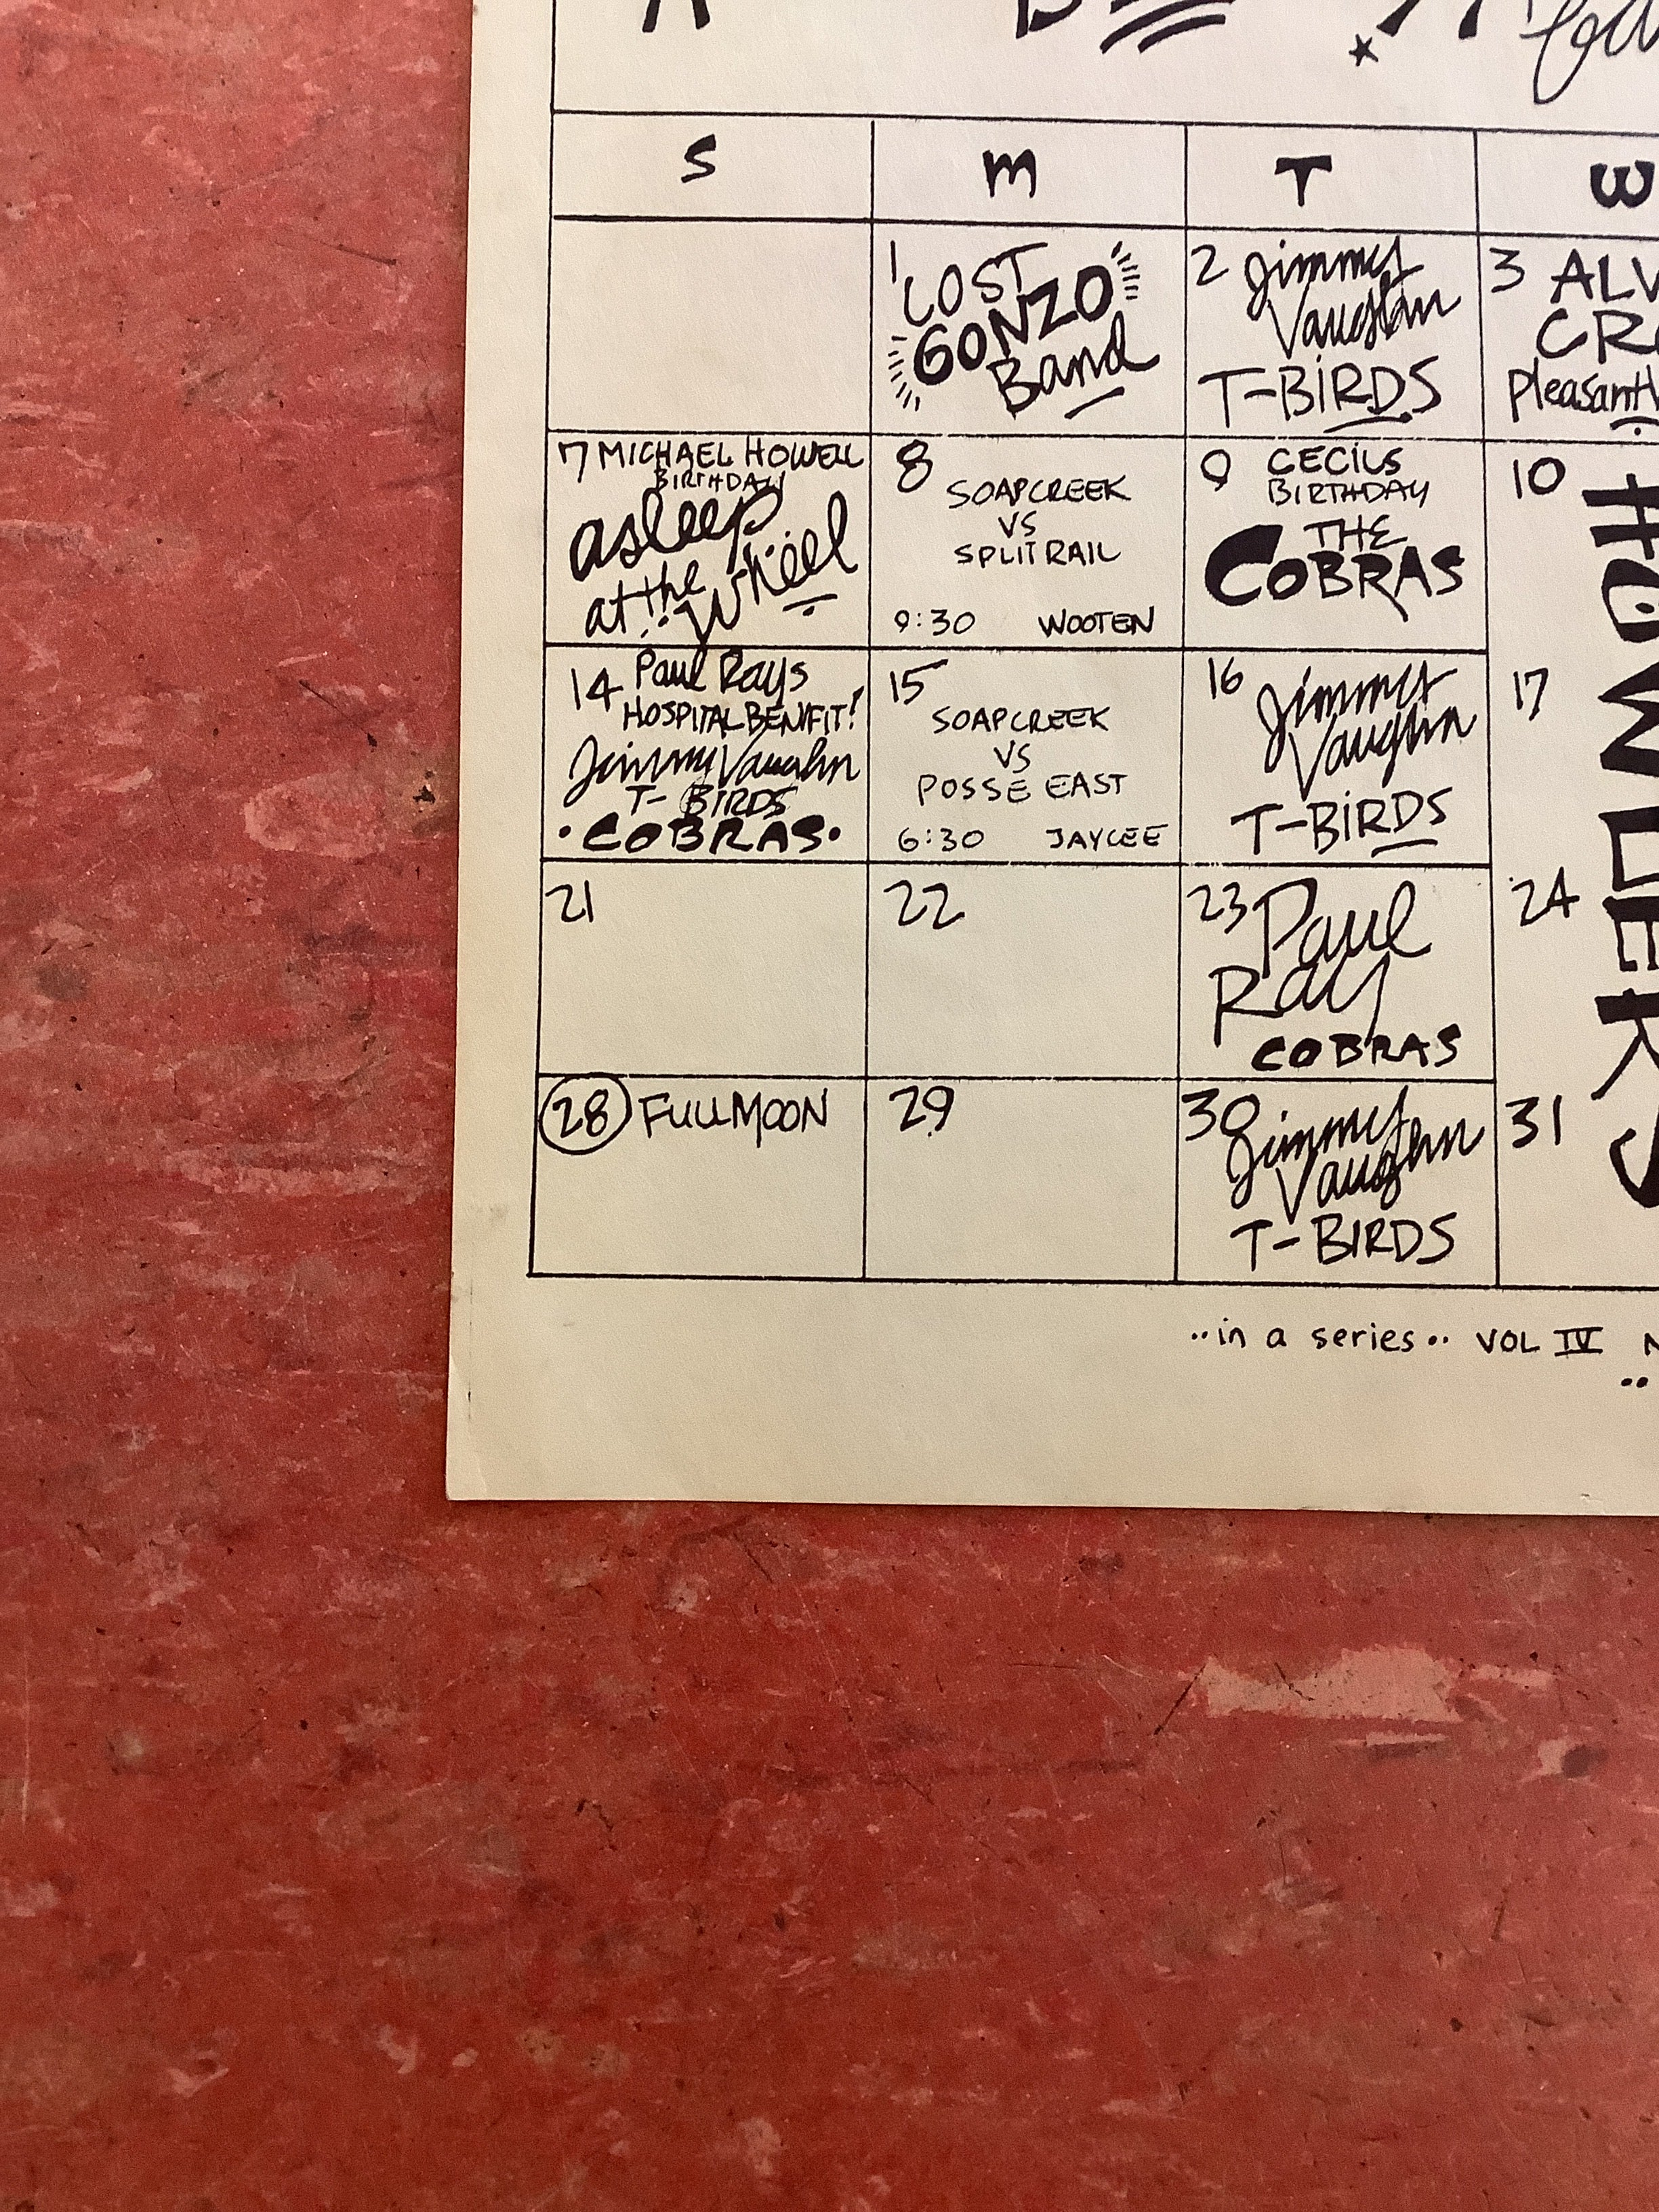 S M T W
1 LOST
GONZO
Band
2 Jimmy
Vaughn
T-BIRDS
3 ALV
CRO
Pleasant
7 MICHAEL HOWELL
BIRTHDAY
asleep
at the Wheel
8 SOAPCREEK
VS
SPLITRAIL
9:30 WOOTEN
9 CECILS
BIRTHDAY
THE
COBRAS
10
HOWLERS
14 Paul Rays
HOSPITAL BENIFIT!
Jimmy Vaughn
T-BIRDS
•COBRAS•
15 SOAPCREEK
VS
POSSE EAST
6:30 JAYCEE
16 Jimmy
Vaughn
T-BIRDS
17
21
22
23 Paul
Ray
COBRAS
24
28 FULLMOON
29
30 Jimmy
Vaughn
T-BIRDS
31
..in a series.. VOL IV